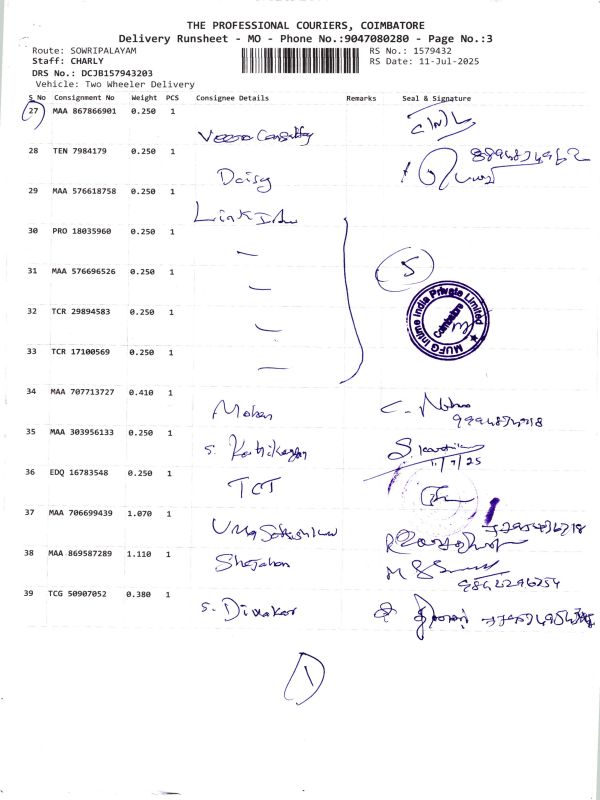 THE PROFESSIONAL COURIERS, COIMBATORE
Delivery Runsheet - MO - Phone No.:9047080280 - Page No.:3
Route: SOWRIPALAYAM
RS No.: 1579432
Staff: CHARLY
RS Date: 11-Jul-2025
DRS No.: DCJB157943203
Vehicle: Two Wheeler Delivery
S No Consignment No Weight PCS Consignee Details Remarks Seal & Signature
27 MAA 867866901 0.250 1
28 TEN 7984179 0.250 1
Daisy
29 MAA 576618758 0.250 1
Link
30 PRO 18035960 0.250 1
—
31 MAA 576696526 0.250 1
—
5
32 TCR 29894583 0.250 1
—
MUFG Intime India Private Limited
Coimbatore
33 TCR 17100569 0.250 1
—
34 MAA 707713727 0.410 1
Mohan
35 MAA 303956133 0.250 1
S.
11/7/25
36 EDQ 16783548 0.250 1
TCT
37 MAA 706699439 1.070 1
38 MAA 869587289 1.110 1
Shajahan
39 TCG 50907052 0.380 1
S. Divakar
1